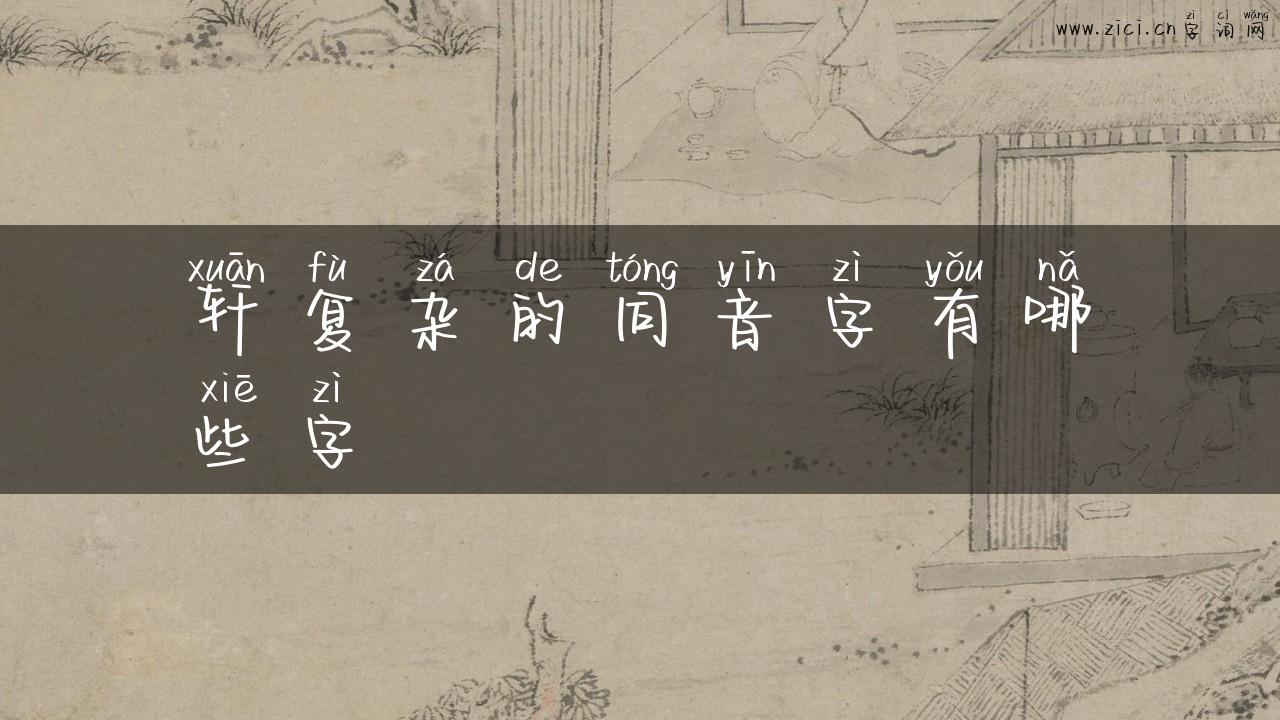 www.zici.cn zì cí wǎng
字 词 网
xuān fù zá de tóng yīn zì yǒu nǎ
轩 复 杂 的 同 音 字 有 哪
xiē zì
些 字